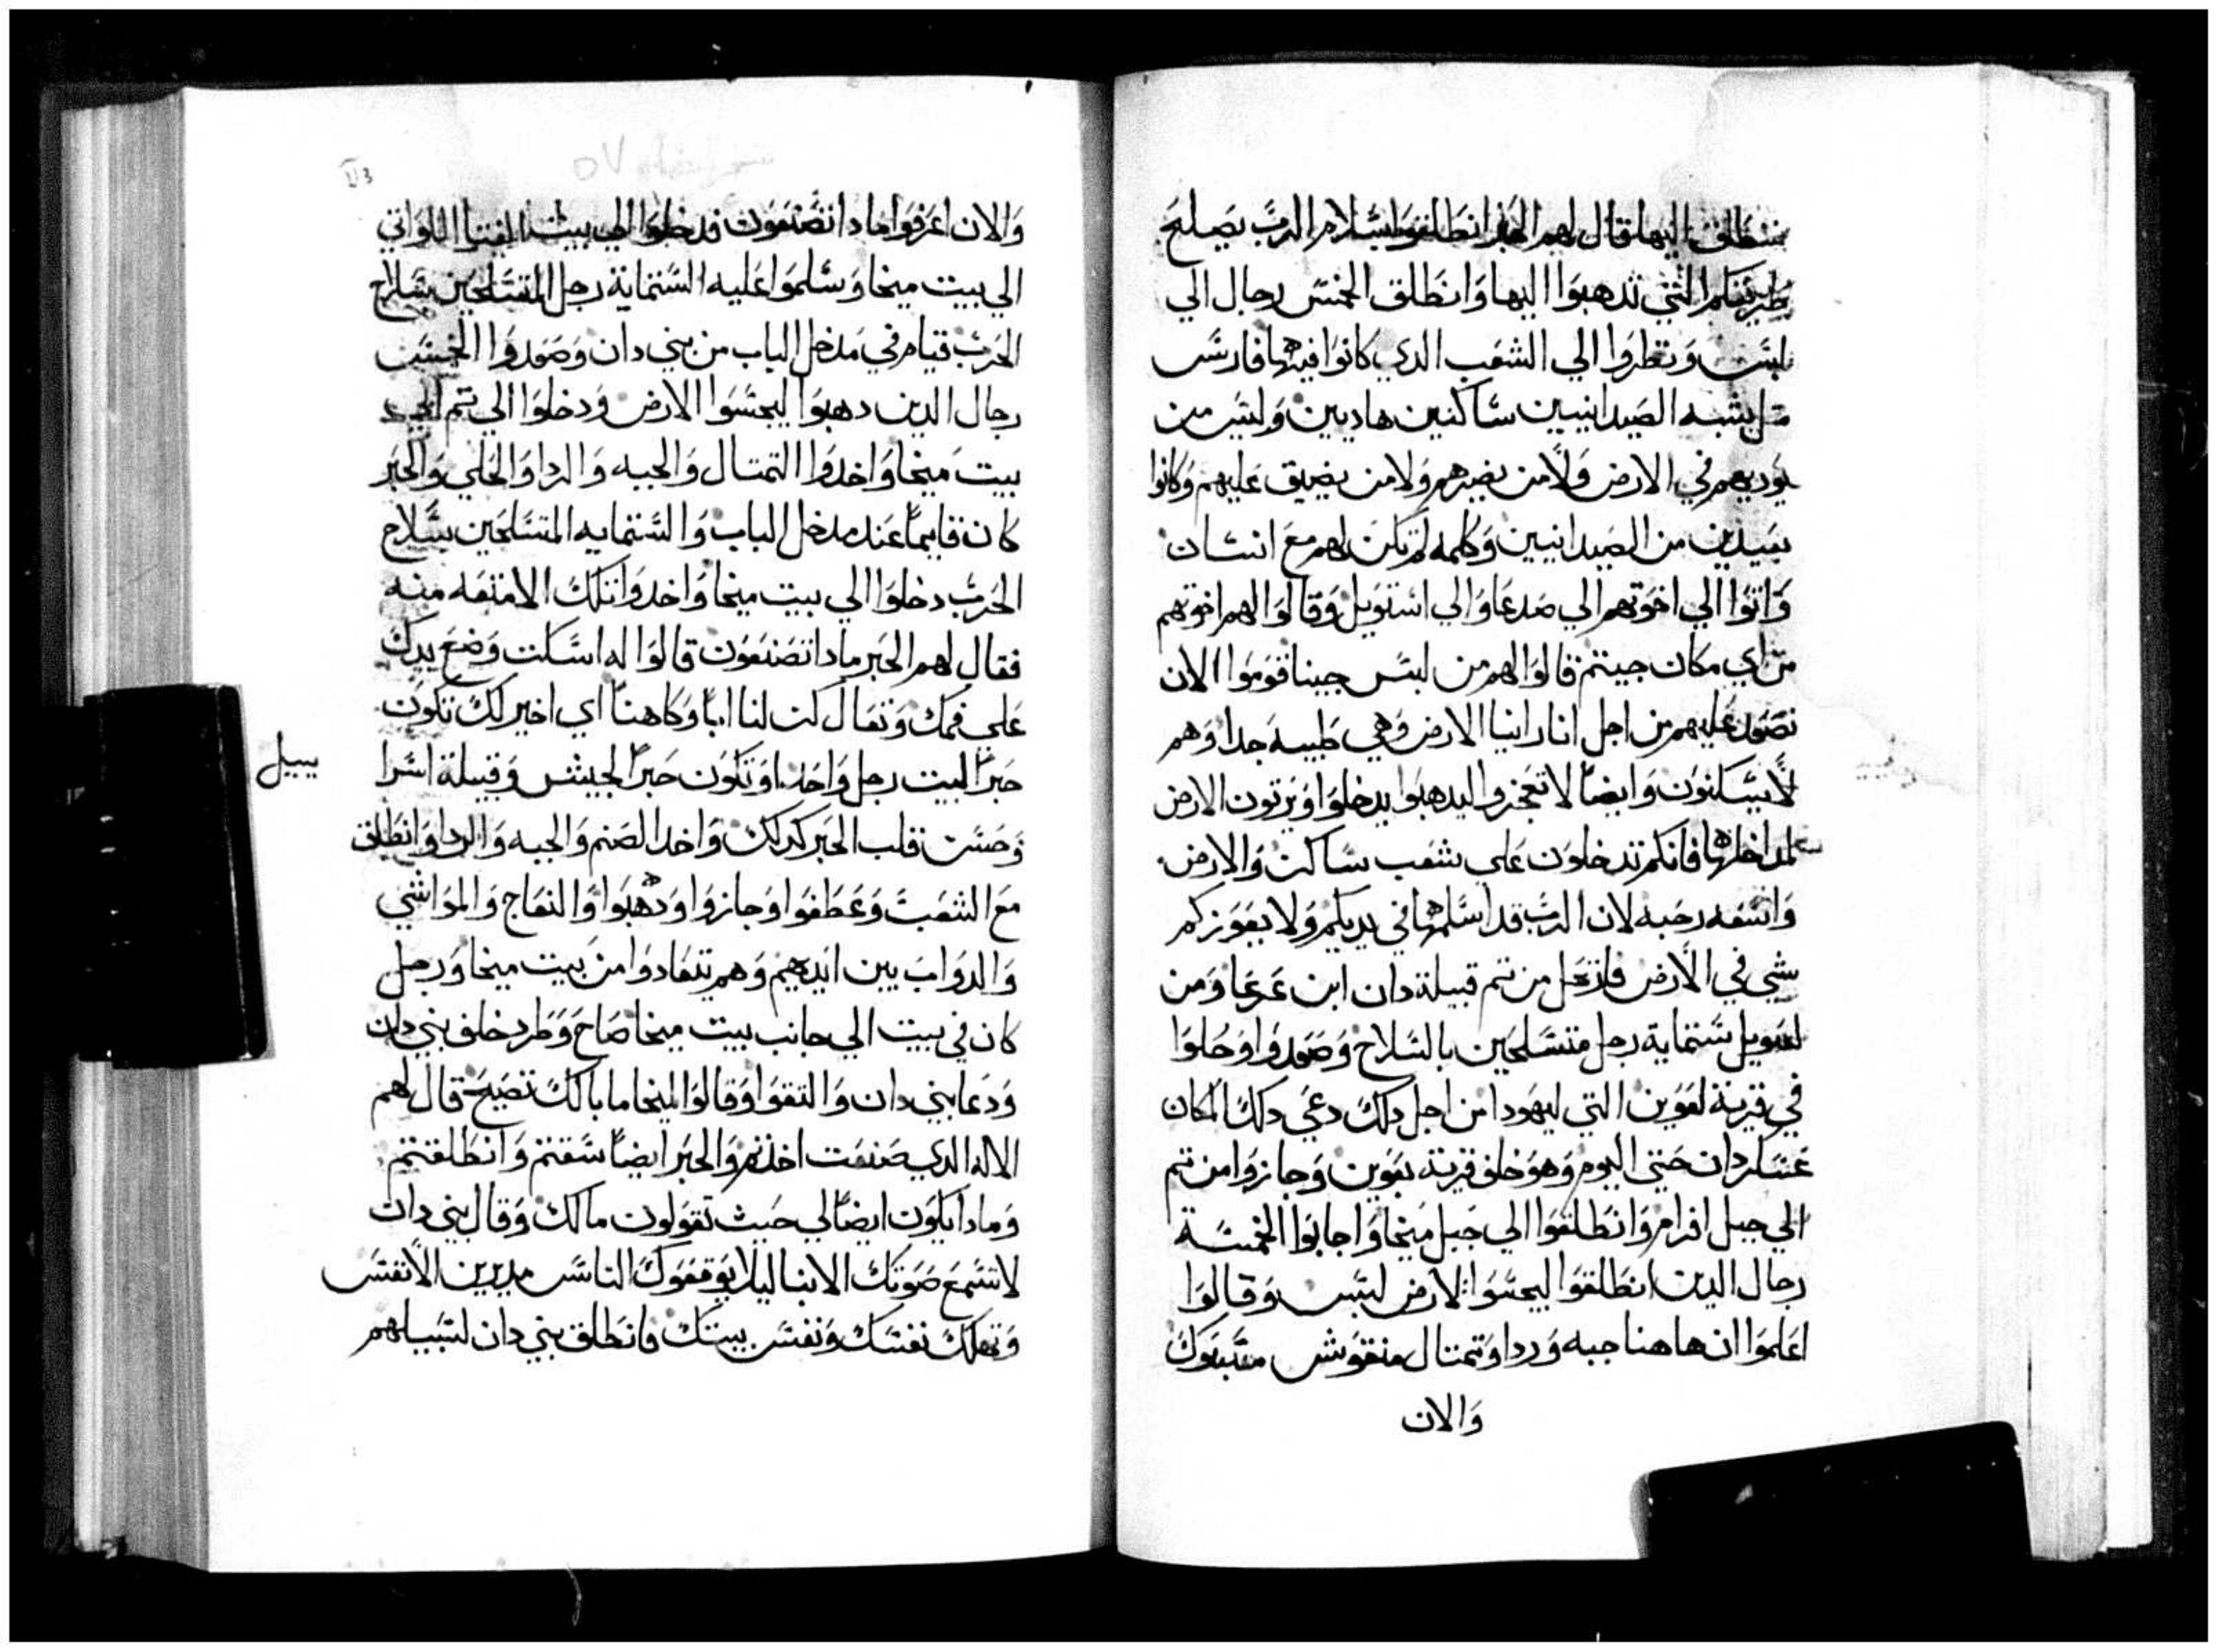 ننطلق اليها قال لهم الحبر انطلقوا بسلام الرب يصلح
طريقكم التي تدهبوا اليها وانطلق الخمس رجال الي
لبس ونظروا الي الشعب الدي كانوا فيها فارس
مثل يشبه الصيدانيين ساكنين هاديين وليس من
يوديهم في الارض ولا من يضرهم ولا من يضيق عليهم وكانوا
بعيدين من الصيدانيين وكلمه لم تكن لهم مع انسان
واتوا الي اخوتهم الي صدعا والي استويل وقالوا لهم اخوتهم
من اي مكان جيتم قالوا لهم من لبس جينا قوموا الان
نصعد عليهم من اجل انا راينا الارض وهي طيبه جدا وهم
لا يسكنون وايضا لا تعجزوا ليدهبوا يدخلوا ويرتون الارض
لمداخلها فانكم تدخلون علي شعب ساكن والارض
واسعه رحبه لان الرب قد اسلمها في يديكم ولا يعوزكم
شي في الارض فارتحل من تم قبيلة دان ابن عرعا ومن
استماية رجل متسلحين بالسلاح وصعدوا وحلوا
في قرية لعوين التي ليهودا من اجل دلك دعي دلك المكان
عسكر دان حتي اليوم وهو خلف قرية بعوين وجازوا من تم
الي جبل افرام وانطلقوا الي جبل ميخا واجابوا الخمسة
رجال الدين انطلقوا ليجسوا الارض لبس وقالوا
اعلموا ان هاهنا جبه وردا وتمتال منقوش مسبوك
والان
والان اعرفوا مادا تصنعون فدخلوا الي بيت الفتيا اللواتي
الي بيت ميخا وسلموا عليه الستماية رجل المتسلحين سلاح
الحرب قيام في مدخل الباب من بني دان وصعدوا الخمس
رجال الدين دهبوا ليجسوا الارض ودخلوا الي تم الي
بيت ميخا واخدوا التمتال والجبه والردا والحلي والحبر
كان قايما عند مدخل الباب والستمايه المتسلحين سلاح
الحرب دخلوا الي بيت ميخا واخدوا تلك الامتعه منه
فقال لهم الحبر مادا تصنعون قالوا له اسكت وضع يدك
علي فمك وتعال كن لنا ابا وكاهنا اي اخير لك تكون
حبرا لبيت رجل واحد او تكون حبرا لجيش وقبيلة اسرا
ييل
وحسن قلب الحبر كدلك واخد الصنم والجبه والردا وانطلق
مع الشعب وعطفوا وجازوا ودهبوا والنعاج والمواشي
والدواب بين ايديهم وهم تتعادوا من بيت ميخا ورجل
كان في بيت الي جانب بيت ميخا صاح وطرد خلف بني دان
ودعا بني دان والتقوا وقالوا لميخا ما بالك تصيح قال لهم
الاله الدي صنعت اخدتم والحبر ايضا سقتم وانطلقتم
ومادا يكون ايضا لي حيث تقولون ما لك وقال بني دان
لا تسمع صوتك الا بنا ليلا يوقعوك الناس مديرين الانفس
وتهلك نفسك ونفس بيتك فانطلق بني دان لسبيلهم